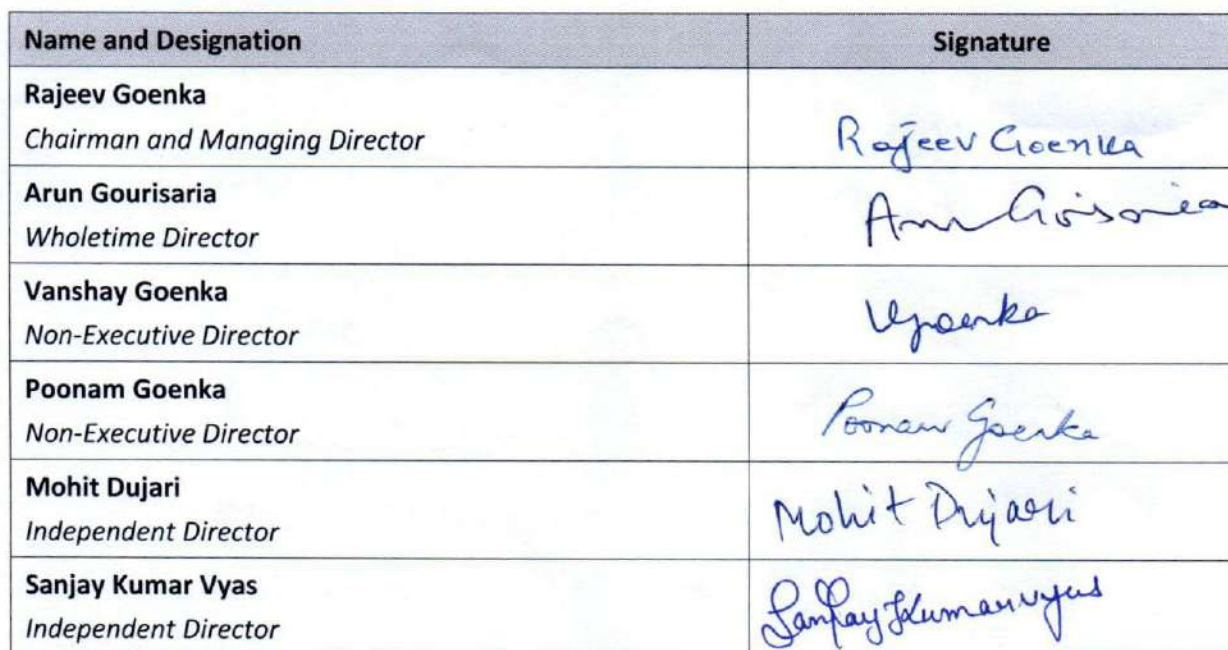 Name and Designation Signature
Rajeev Goenka
Chairman and Managing Director Rajeev Goenka
Arun Gourisaria
Wholetime Director
Vanshay Goenka
Non-Executive Director VGoenka
Poonam Goenka
Non-Executive Director Poonam Goenka
Mohit Dujari
Independent Director Mohit Dujari
Sanjay Kumar Vyas
Independent Director Sanjay Kumar Vyas